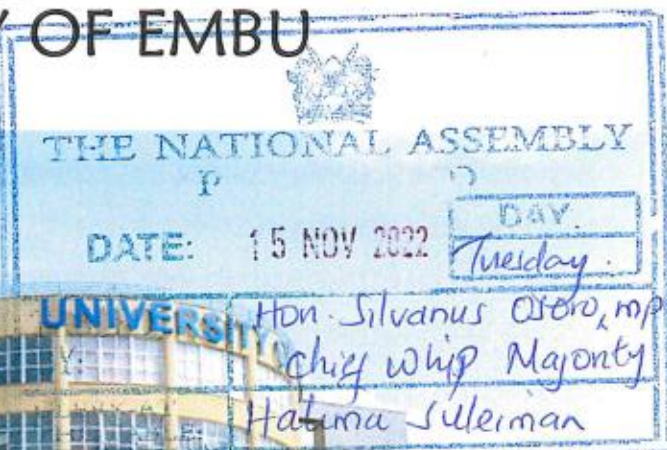 Y OF EMBU
THE NATIONAL ASSEMBLY
P D
DATE: 15 NOV 2022
DAY.
Tuesday.
UNIVERSITY
Hon. Silvanus Osoro, mp
Y:
Chief Whip Majority
Halima Suleiman